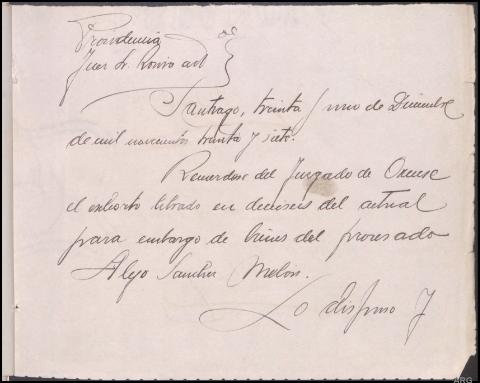 Providencia
Juez Sr.
Santiago, treinta y uno de Diciembre
de mil novecientos treinta y siete.
Recuerdese del Juzgado de Orense
el exhorto librado en dieciseis del actual
para embargo de bienes del procesado
Alejo Sanchez Melón.
Lo dispuso y
ARG